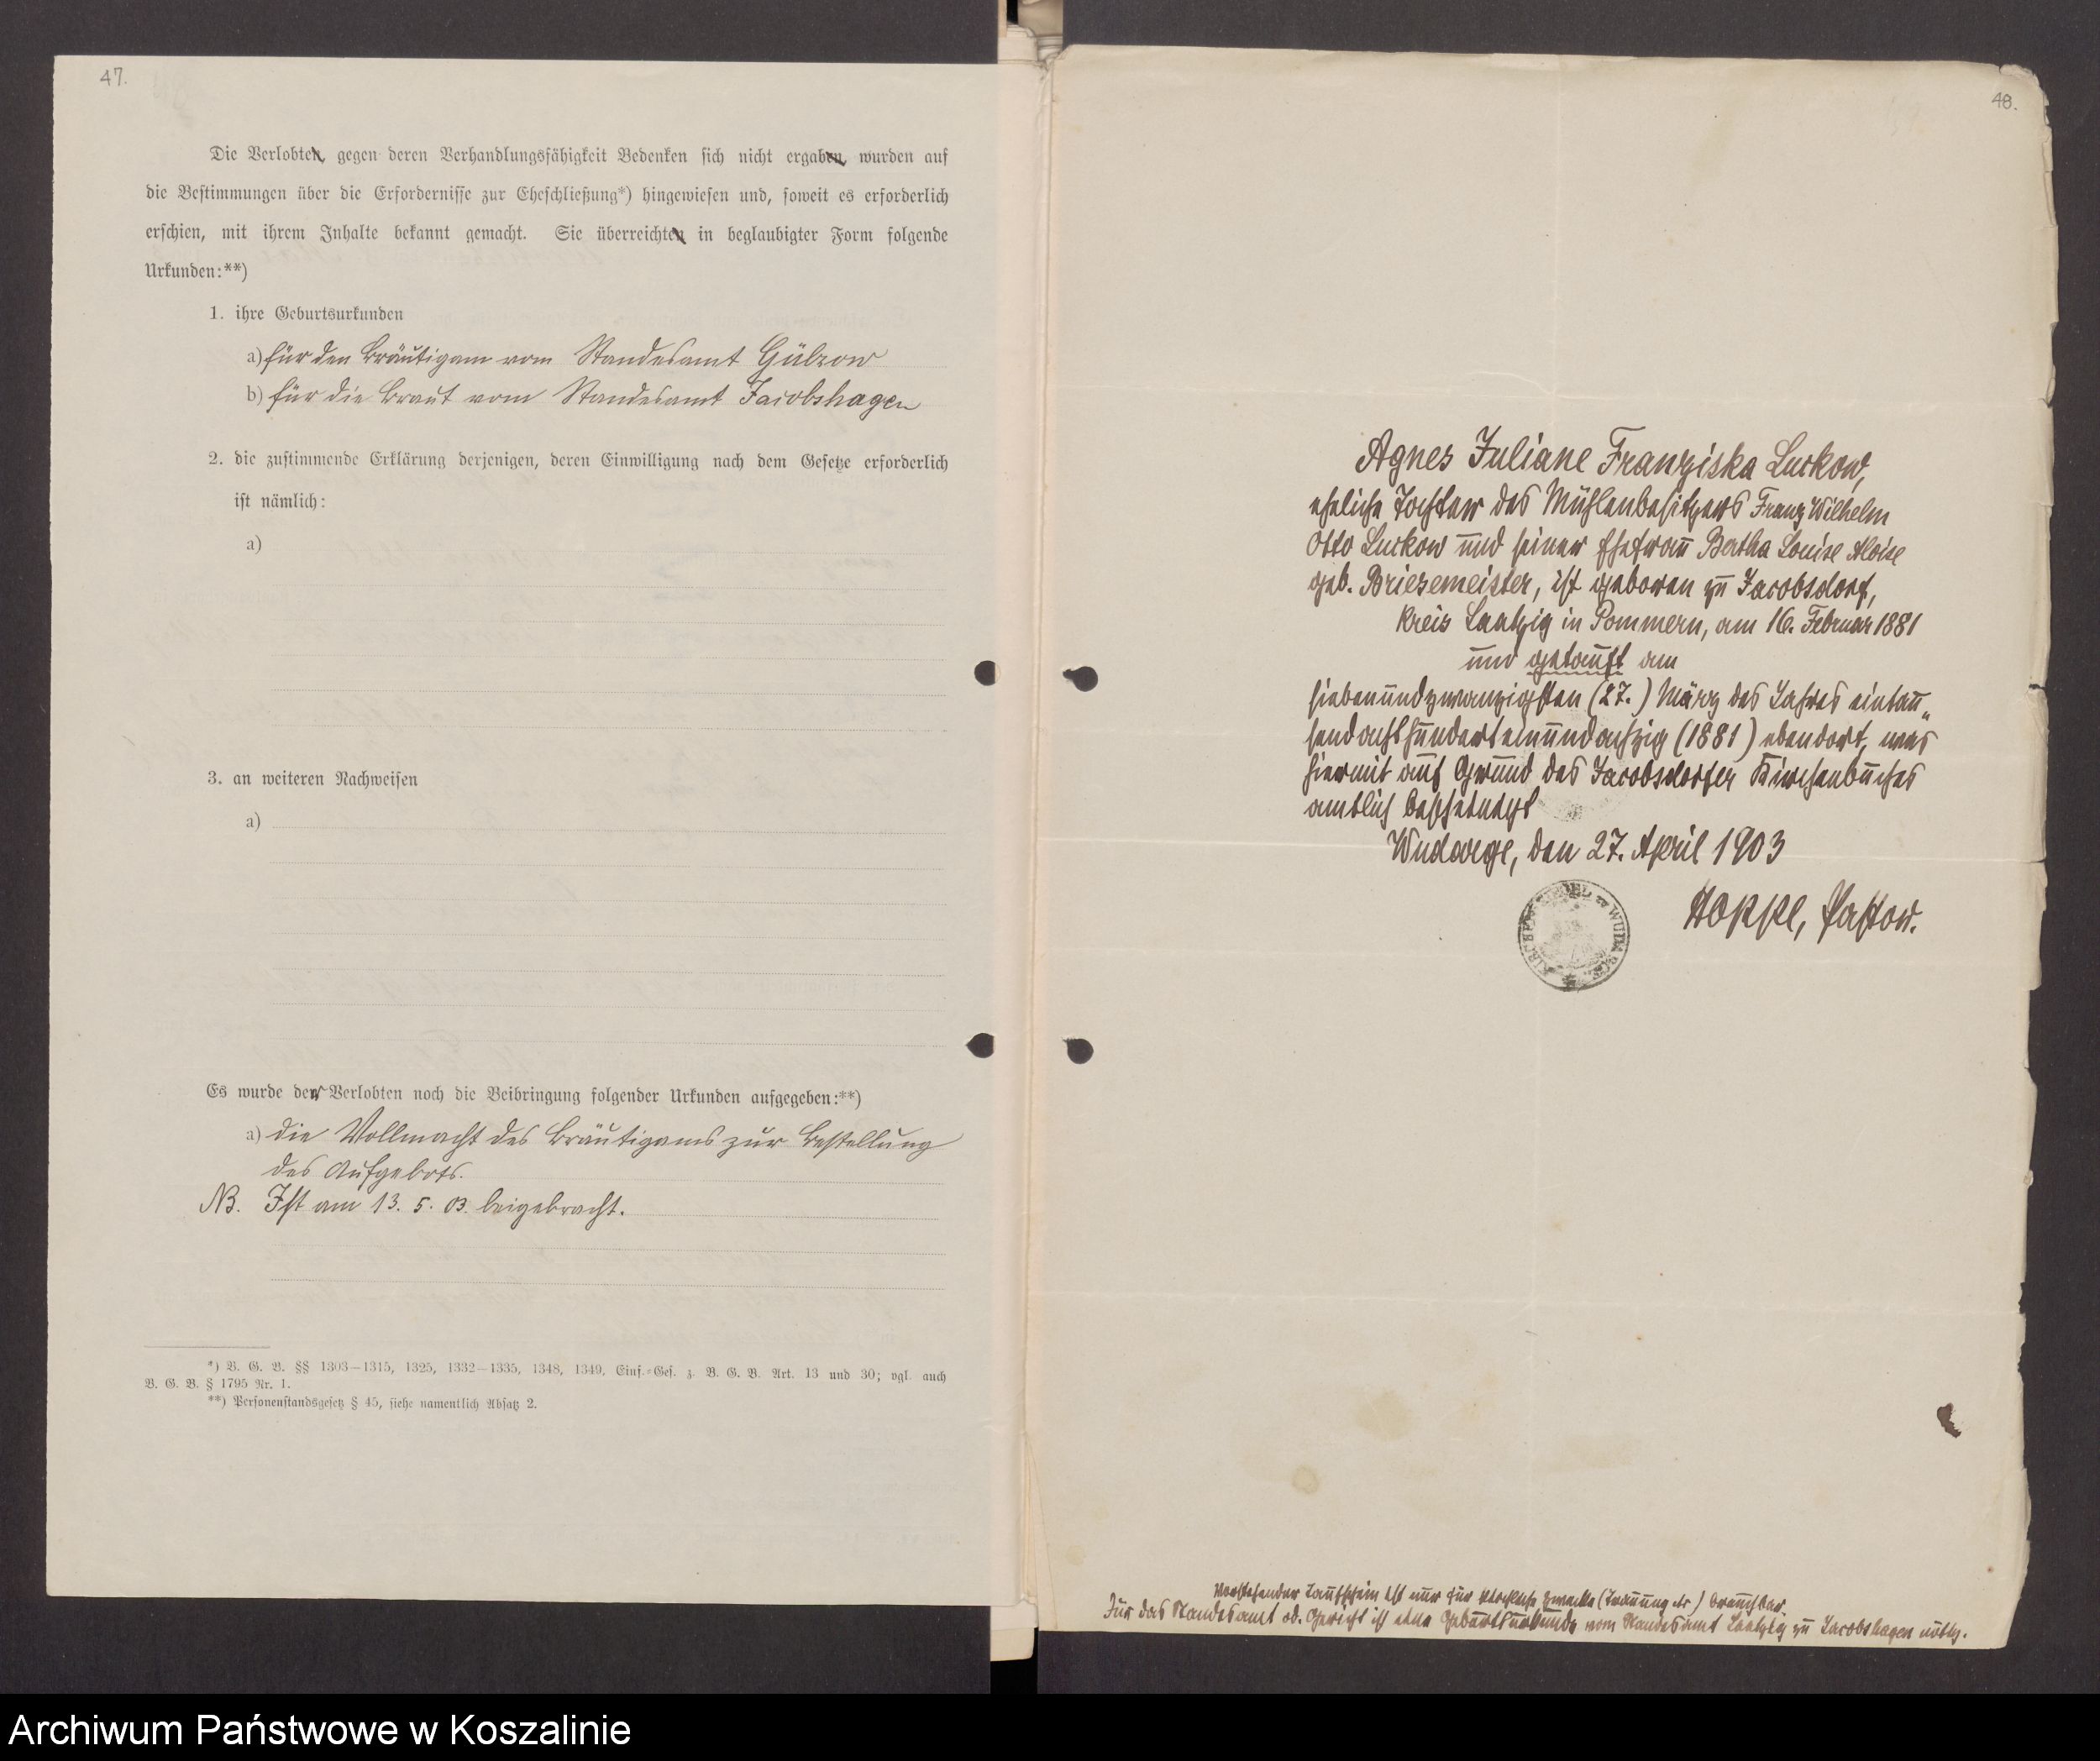 47.
Die Verlobten, gegen deren Verhandlungsfähigkeit Bedenken sich nicht ergaben, wurden auf
die Bestimmungen über die Erfordernisse zur Eheschließung*) hingewiesen und, soweit es erforderlich
erschien, mit ihrem Inhalte bekannt gemacht. Sie überreichten in beglaubigter Form folgende
Urkunden:**)
1. ihre Geburtsurkunden
a) für den Bräutigam vom Standesamt Gülzow
b) für die Braut vom Standesamt Jacobshagen
2. die zustimmende Erklärung derjenigen, deren Einwilligung nach dem Gesetze erforderlich
ist nämlich:
a)
3. an weiteren Nachweisen
a)
Es wurde der Verlobten noch die Beibringung folgender Urkunden aufgegeben:**)
a) die Vollmacht des Bräutigams zur Bestellung
des Aufgebots.
NB. Ist am 13. 5. 03. beigebracht.
*) B. G. B. §§ 1303–1315, 1325, 1332–1335, 1348, 1349, Einf.-Ges. z. B. G. B. Art. 13 und 30; vgl. auch
B. G. B. § 1795 Nr. 1.
**) Personenstandsgesetz § 45, siehe namentlich Absatz 2.
48.
Agnes Juliane Franziska Luckow,
eheliche Tochter des Mühlenbesitzers Franz Wilhelm
Otto Luckow und seiner Ehefrau Bertha Louise Aloise
geb. Briesemeister, ist geboren zu Jacobsdorf,
Kreis Saatzig in Pommern, am 16. Februar 1881
und getauft am
siebenundzwanzigsten (27.) März des Jahres eintau„
sendachthunderteinundachzig (1881) ebendort, was
hiermit auf Grund des Jacobsdorfer Kirchenbuches
amtlich bescheinigt
Wudarge, den 27. April 1903
Hoppe, Pastor.
KIRCHEN SIEGEL v WUDARGE
Vorstehender Taufschein ist nur für kirchliche Zwecke (Trauung etc) brauchbar.
Für das Standesamt od. Gericht ist eine Geburtsurkunde vom Standesamt Saatzig zu Jacobshagen nötig.
Archiwum Państwowe w Koszalinie